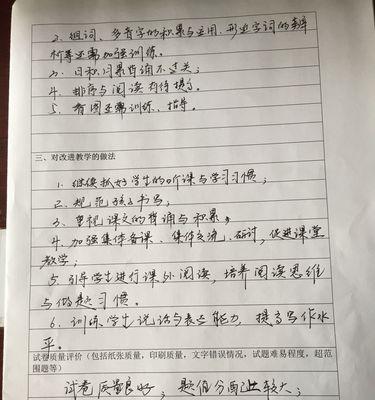 2. 组词、多音字的积累与运用,形近字词的辨
析等还需加强训练。
3. 日积月累背诵不过关;
4. 排序与阅读有待提高。
5. 看图还需训练、指导。
三、对改进教学的做法
1. 继续抓好学生的听课与学习习惯;
2. 规范孩子书写;
3. 重视课文的背诵与积累。
4. 加强集体备课、集体交流、研讨,促进课堂
教学;
5. 引导学生进行课外阅读,培养阅读思维
与做题习惯。
6. 训练学生说话与表达能力,提高写作水
平。
试卷质量评价(包括纸张质量,印刷质量,文字错误情况,试题难易程度,超范
围题等)
试卷质量良好,题值分配比较大;